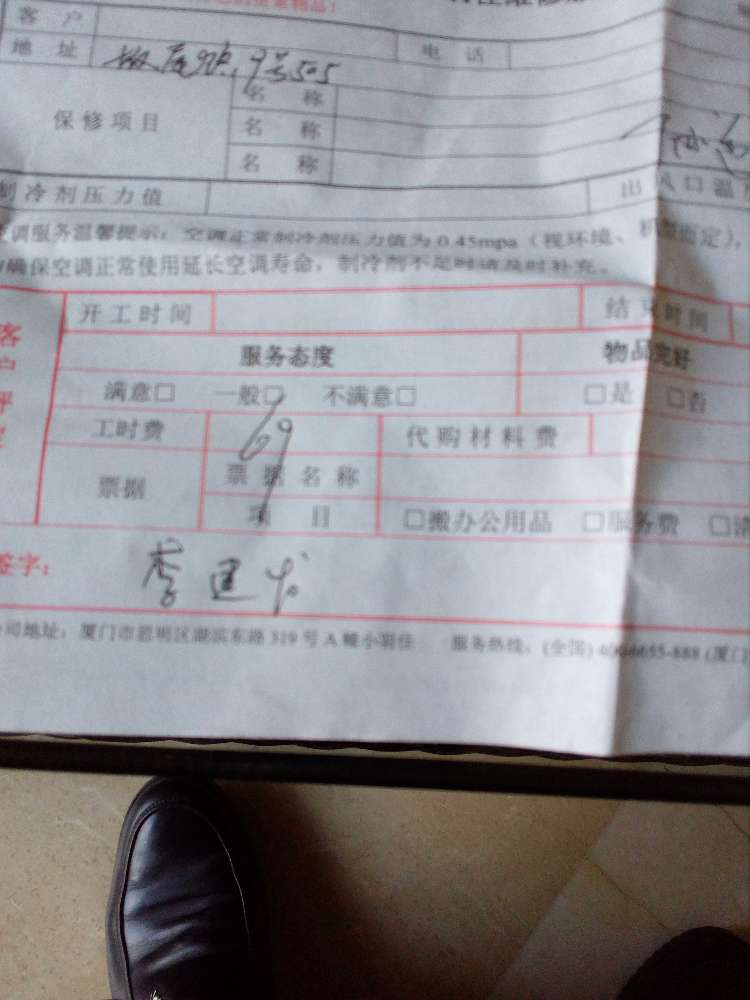 客 户
地 址 9号505 电 话
保修项目 名 称
名 称
名 称
制冷剂压力值 出风口温
空调服务温馨提示：空调正常制冷剂压力值为 0.45mpa（视环境、机型而定），
确保空调正常使用延长空调寿命，制冷剂不足时请及时补充。
开工时间 结束时间
服务态度 物品完好
满意□ 一般□ 不满意□ □是 □否
工时费 69 代购材料费
票据 票据名称
项 目 □搬办公用品 □服务费
签字： 李建
公司地址：厦门市思明区湖滨东路 319 号 A 幢小羽佳 服务热线：(全国) 4006655-888 (厦门